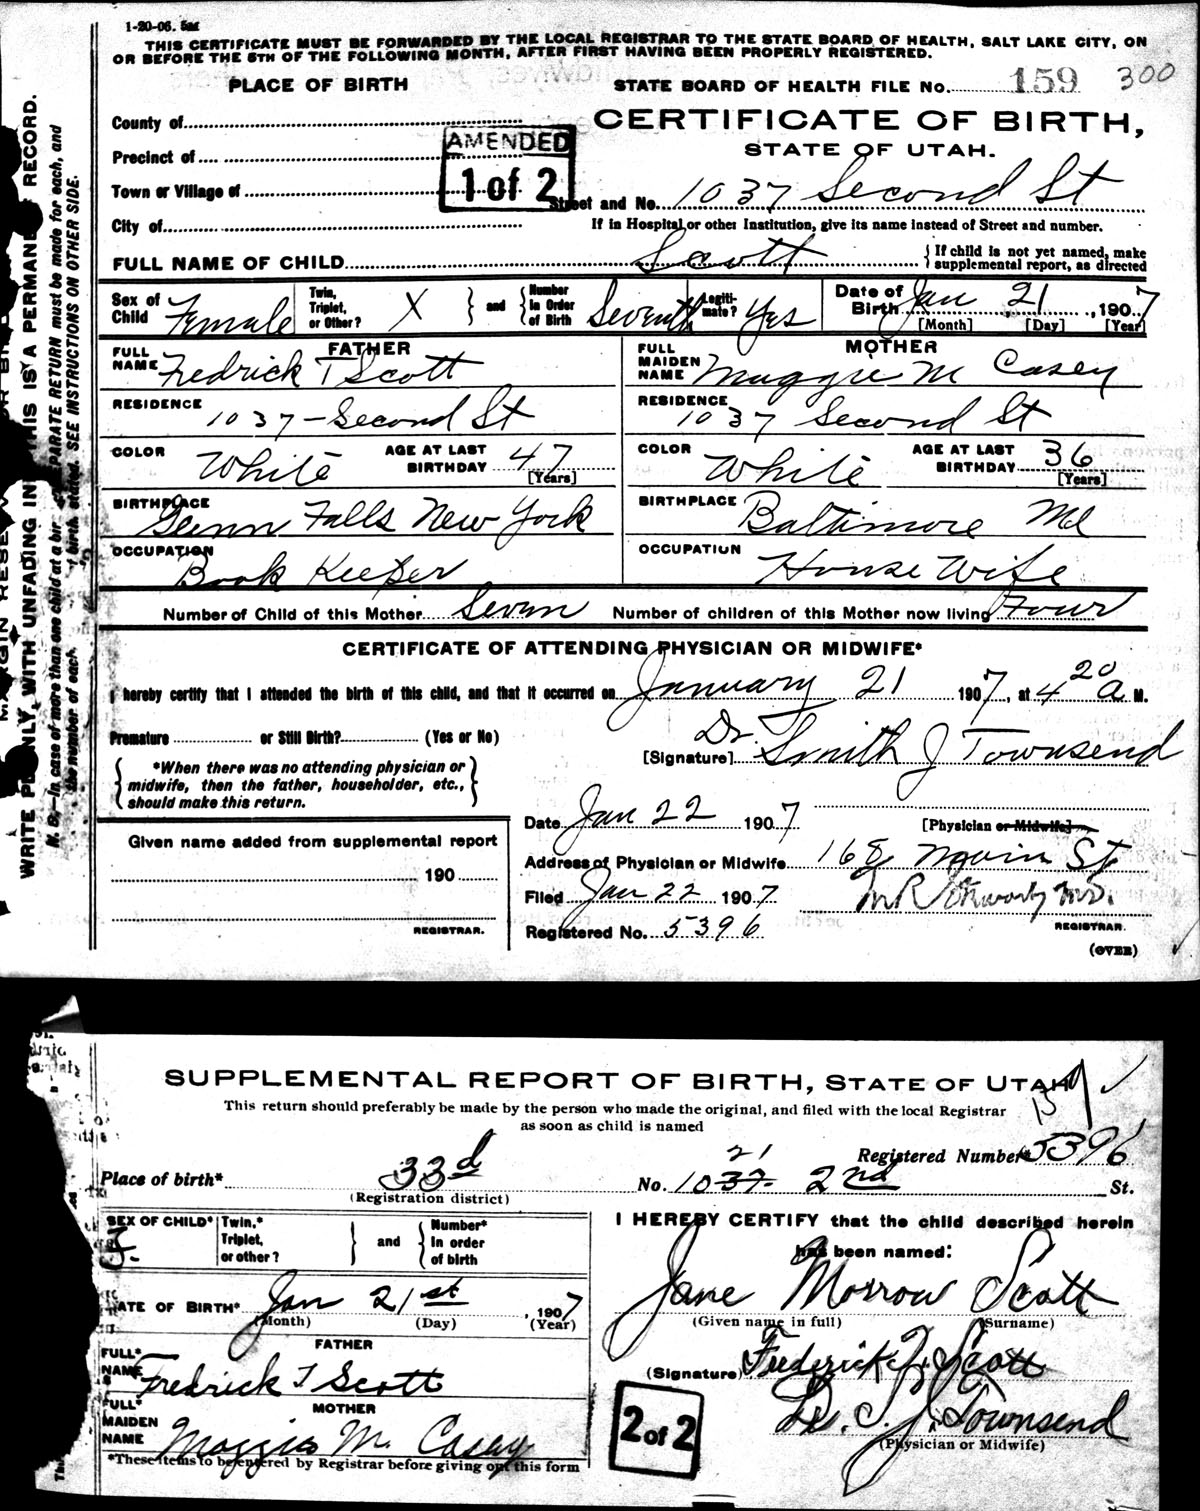 1-20-06. 5M
THIS CERTIFICATE MUST BE FORWARDED BY THE LOCAL REGISTRAR TO THE STATE BOARD OF HEALTH, SALT LAKE CITY, ON
OR BEFORE THE 5TH OF THE FOLLOWING MONTH, AFTER FIRST HAVING BEEN PROPERLY REGISTERED.
PLACE OF BIRTH
STATE BOARD OF HEALTH FILE No. 159 300
County of
CERTIFICATE OF BIRTH,
AMENDED
STATE OF UTAH.
Precinct of
1 of 2
Town or Village of
Street and No. 1037 Second St
City of
If in Hospital or other Institution, give its name instead of Street and number.
FULL NAME OF CHILD Scott { If child is not yet named, make
supplemental report, as directed
Sex of Child Female Twin, Triplet, or Other? X } and { Number in Order of Birth Seventh Legiti- mate? Yes Date of Birth Jan 21, 1907
[Month] [Day] [Year]
FATHER MOTHER
FULL NAME Fredrick T Scott FULL MAIDEN NAME Maggie M Casey
RESIDENCE 1037-Second St RESIDENCE 1037 Second St
COLOR White AGE AT LAST BIRTHDAY 47 [Years] COLOR White AGE AT LAST BIRTHDAY 36 [Years]
BIRTHPLACE Glenn Falls New York BIRTHPLACE Baltimore Md
OCCUPATION Book Keeper OCCUPATION House Wife
Number of Child of this Mother Seven Number of children of this Mother now living Four
CERTIFICATE OF ATTENDING PHYSICIAN OR MIDWIFE*
I hereby certify that I attended the birth of this child, and that it occurred on January 21 1907, at 4 20 A M.
Premature or Still Birth? (Yes or No)
[Signature] Dr Smith J Townsend
{ *When there was no attending physician or
midwife, then the father, householder, etc.,
should make this return. }
Date Jan 22 1907 [Physician or Midwife]
Given name added from supplemental report
Address of Physician or Midwife 168 Main St
190
Filed Jan 22 1907 M.D.
REGISTRAR. REGISTRAR.
Registered No. 5396
(OVER)
WRITE PLAINLY, WITH UNFADING INK—THIS IS A PERMANENT RECORD.
N. B.—In case of more than one child at a birth, a SEPARATE RETURN must be made for each, and
the number of each, in order of birth, stated. SEE INSTRUCTIONS ON OTHER SIDE.
SUPPLEMENTAL REPORT OF BIRTH, STATE OF UTAH
159
This return should preferably be made by the person who made the original, and filed with the local Registrar
as soon as child is named
Registered Number* 5396
Place of birth* 33d No. 1037 21 2nd St.
(Registration district)
SEX OF CHILD* F Twin,* Triplet, or other? } and { Number* in order of birth
I HEREBY CERTIFY that the child described herein
has been named:
DATE OF BIRTH* Jan 21st, 1907
(Month) (Day) (Year)
Jane Morrow Scott
(Given name in full) (Surname)
FATHER
FULL* NAME Fredrick T Scott
(Signature) Frederick T. Scott
MOTHER
FULL* MAIDEN NAME Maggie M. Casey
Dr. S. J. Townsend
(Physician or Midwife)
2 of 2
*These items to be entered by Registrar before giving out this form